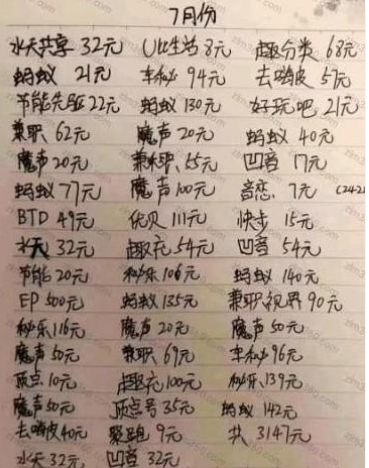 7月份
水天共享 32元 U比生活 8元 趣分类 68元
蚂蚁 21元 车秘 94元 去嗨皮 57元
节能先驱 22元 蚂蚁 130元 好玩吧 21元
兼职 62元 魔声 20元 蚂蚁 40元
魔声 20元 兼职 55元 凹音 17元
蚂蚁 77元 魔声 100元 音恋 7元 (242
BTD 49元 优贝 111元 快步 15元
水天 32元 趣充 54元 凹音 54元
节能 20元 秘乐 106元 蚂蚁 140元
EP 500元 蚂蚁 135元 兼职视界 90元
秘乐 116元 魔声 20元 魔声 50元
魔声 50元 兼职 69元 车秘 96元
顶点 10元 趣充 100元 秘乐 139元
魔声 50元 顶点号 35元 蚂蚁 142元
去嗨皮 40元 聚跑 9元 共 3147元
水天 32元 凹音 32元